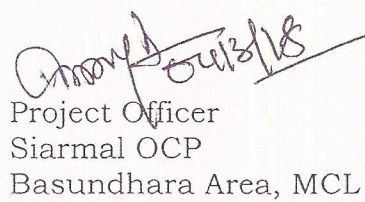 04/3/18
Project Officer
Siarmal OCP
Basundhara Area, MCL